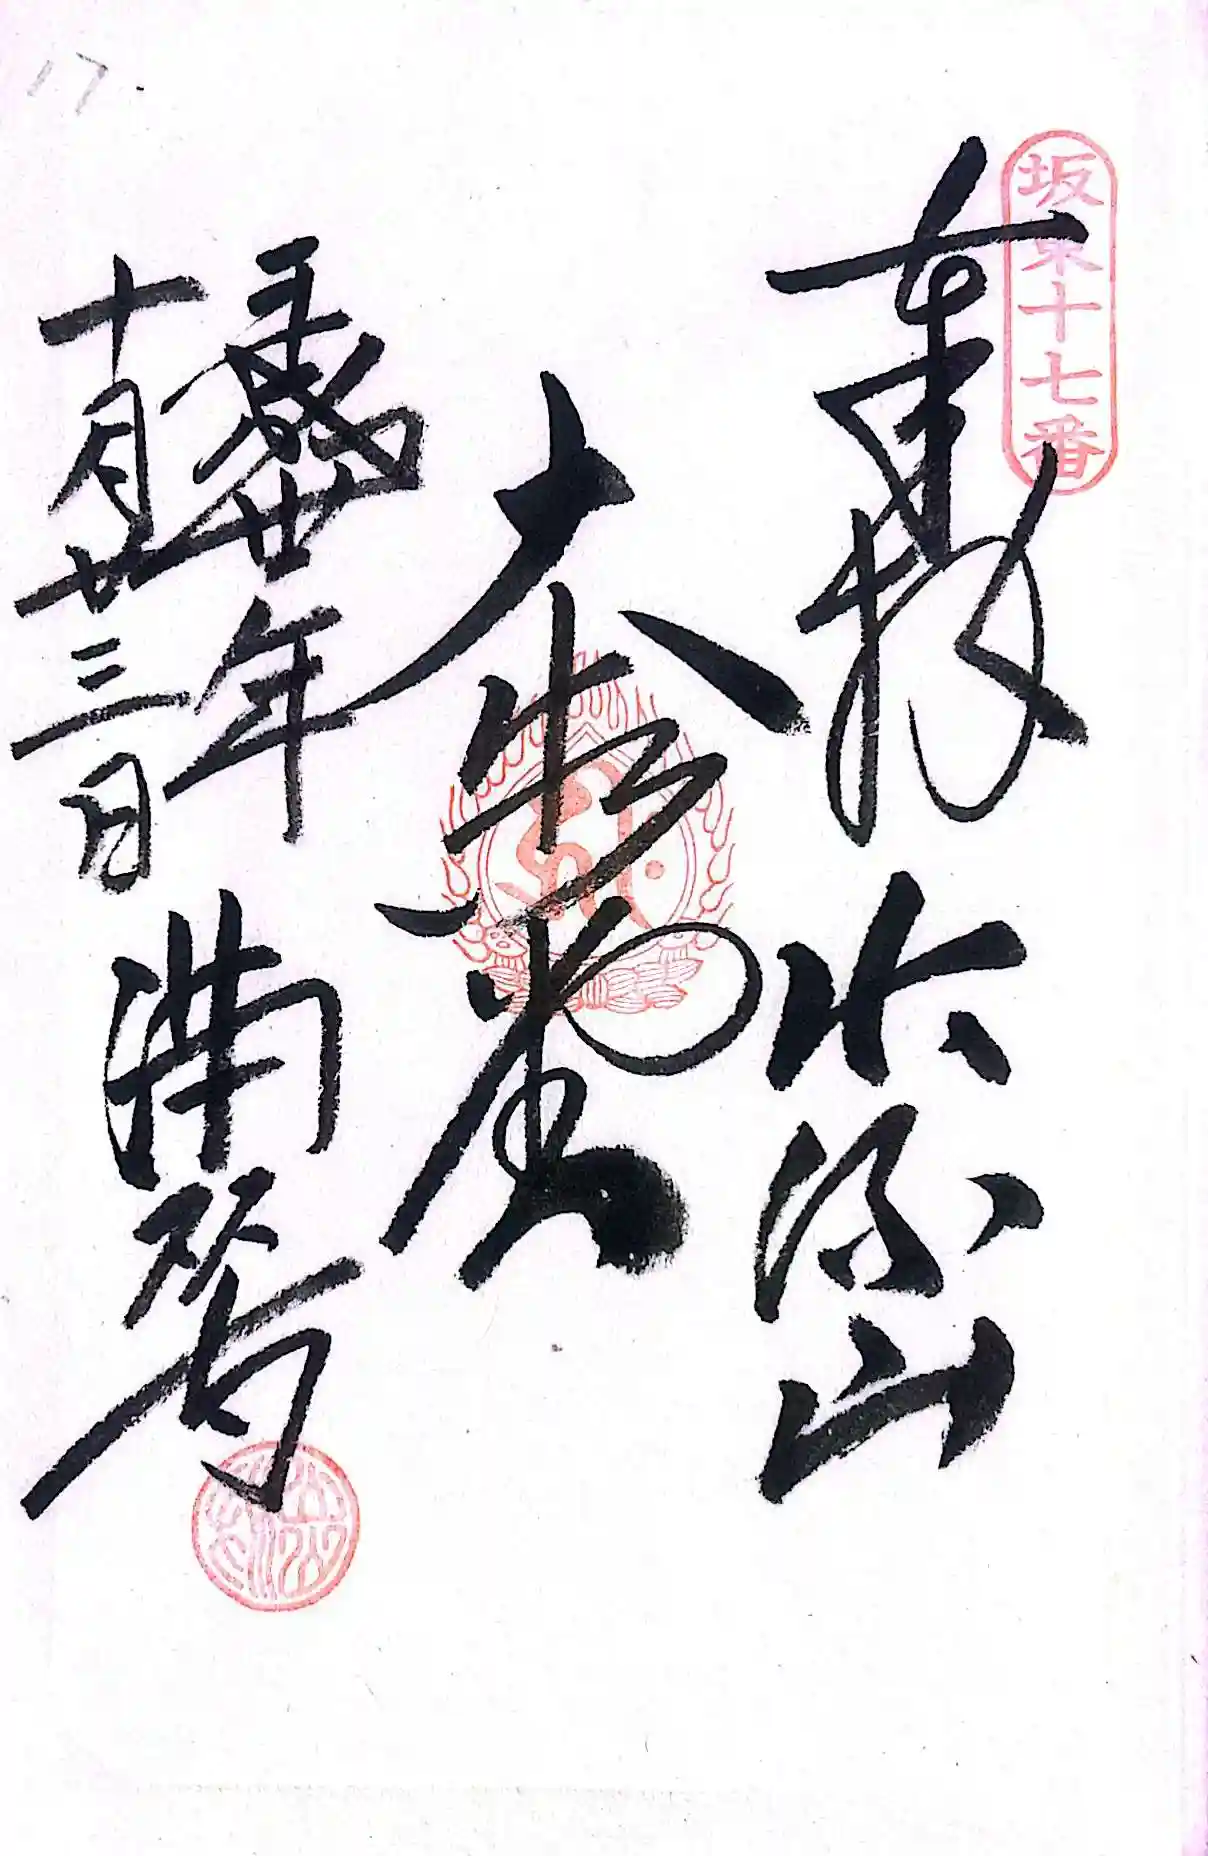 17.
坂東十七番
奉拝 出流山
大
平成廿年
十月廿三日
満願寺